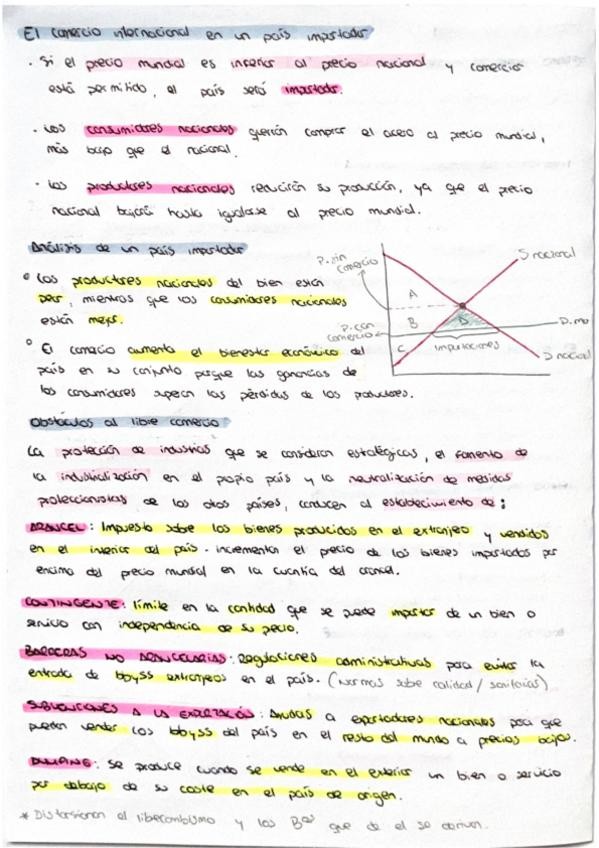 El comercio internacional en un país importador
· Si el precio mundial es inferior al precio nacional y comerciar
está permitido, el país será importador.
· Los consumidores nacionales querrán comprar el acero al precio mundial,
más bajo que el nacional.
· Los productores nacionales reducirán su producción, ya que el precio
nacional bajará hasta igualarse al precio mundial.
Análisis de un país importador
° Los productores nacionales del bien están
peor, mientras que los consumidores nacionales
están mejor.
° El comercio aumenta el bienestar económico del
país en su conjunto porque las ganancias de
los consumidores superan las pérdidas de los productores.
P. sin
comercio
S nacional
A
B
D
P. con
comercio
P. mu
C
importaciones
D nacional
Obstáculos al libre comercio
La protección de industrias que se consideran estratégicas, el fomento de
la industrialización en el propio país y la neutralización de medidas
proteccionistas de los otros países, conducen al establecimiento de:
ARANCEL: Impuesto sobre los bienes producidos en el extranjero y vendidos
en el interior del país. incrementan el precio de los bienes importados por
encima del precio mundial en la cuantía del arancel.
CONTINGENTE: límite en la cantidad que se puede importar de un bien o
servicio con independencia de su precio.
BARRERAS NO ARANCELARIAS: Regulaciones administrativas para evitar la
entrada de bbyss extranjeros en el país. (Normas sobre calidad / sanitarias)
SUBVENCIONES A LA EXPORTACIÓN: Ayudas a exportadores nacionales para que
puedan vender los bbyss del país en el resto del mundo a precios bajos.
DUMPING: Se produce cuando se vende en el exterior un bien o servicio
por debajo de su coste en el país de origen.
* Distorsionan el librecambismo y los Bºs que de el se derivan.